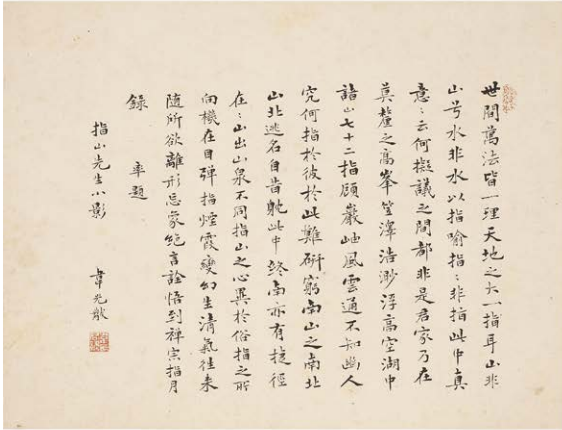 世間萬法皆一理天地之大一指耳山非
山兮水非水以指喻指:非指此中真
意:云何擬議之間都非是君家乃在
莫釐之高峯笠澤浩渺浮高空湖中
諸山七十二指顧巖岫風雲通不知幽人
究何指於彼於此難研窮南山之南北
山北逃名自昔躭此中終南亦有捷徑
在:山出山泉不同指山之心異於俗指之所
向機在目彈指煙霞變幻生清氣往来
隨所欲離形忘象絕言詮悟到禪宗指月
錄 率題
指山先生小影
韋光黻